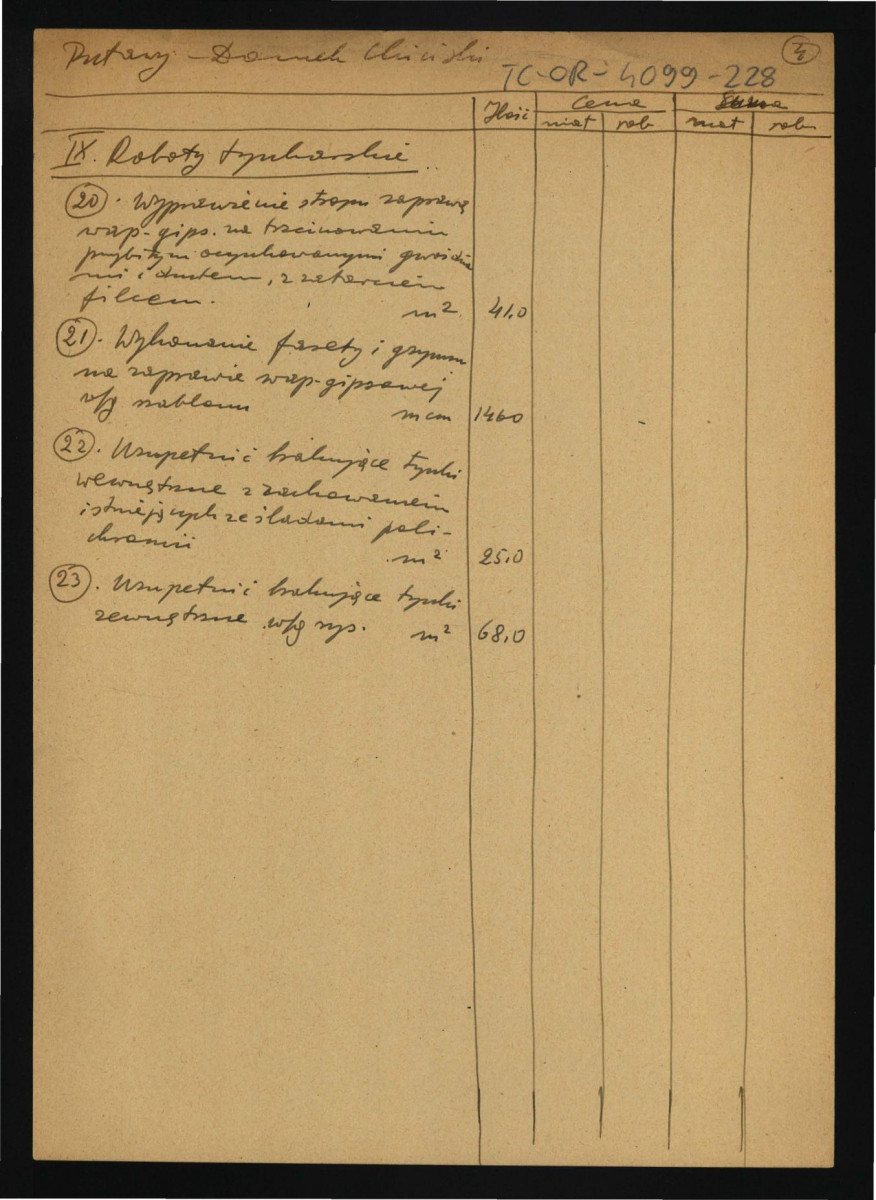 Puławy - Domek Chiński
TC-OR-4099-228
Ilość Cena Suma
mat rob mat rob
IX. Roboty tynkarskie
20. Wyprawienie stropu zaprawą
wap-gips. na trzcinowaniu
przybitym ocynkowanymi gwoździa
mi i drutem, z zatarciem
filcem. m² 41,0
21. Wykonanie fasety i gzymsu
na zaprawie wap-gipsowej
wg szablonu m cm 1460
22. Uzupełnić brakujące tynki
wewnętrzne z zachowaniem
istniejących ze śladami poli-
chromii m² 25,0
23. Uzupełnić brakujące tynki
zewnętrzne wg rys. m² 68,0